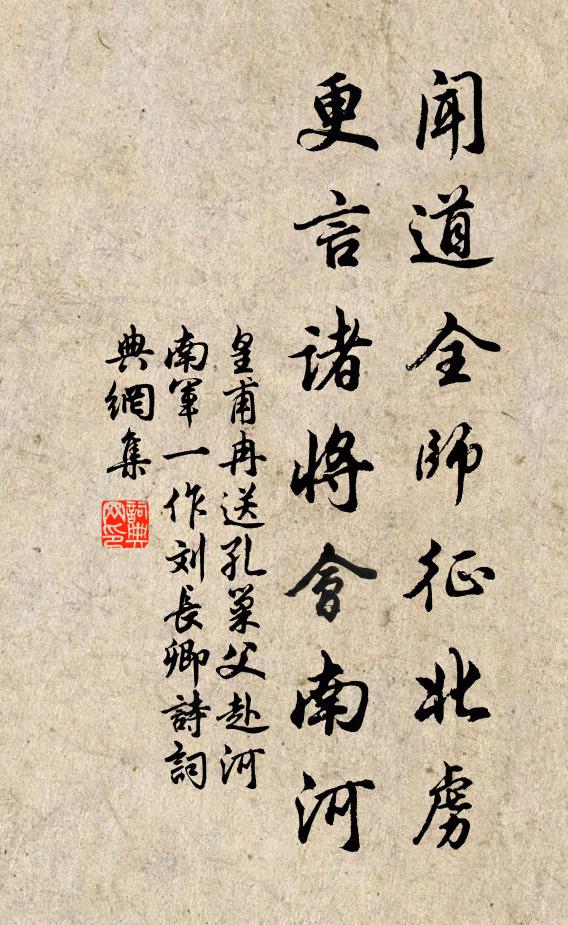 闻道全师征北虏
更言诸将会南河
皇甫冉送孔巢父赴河
南军一作刘長卿詩詞
典網集
詞典
网印